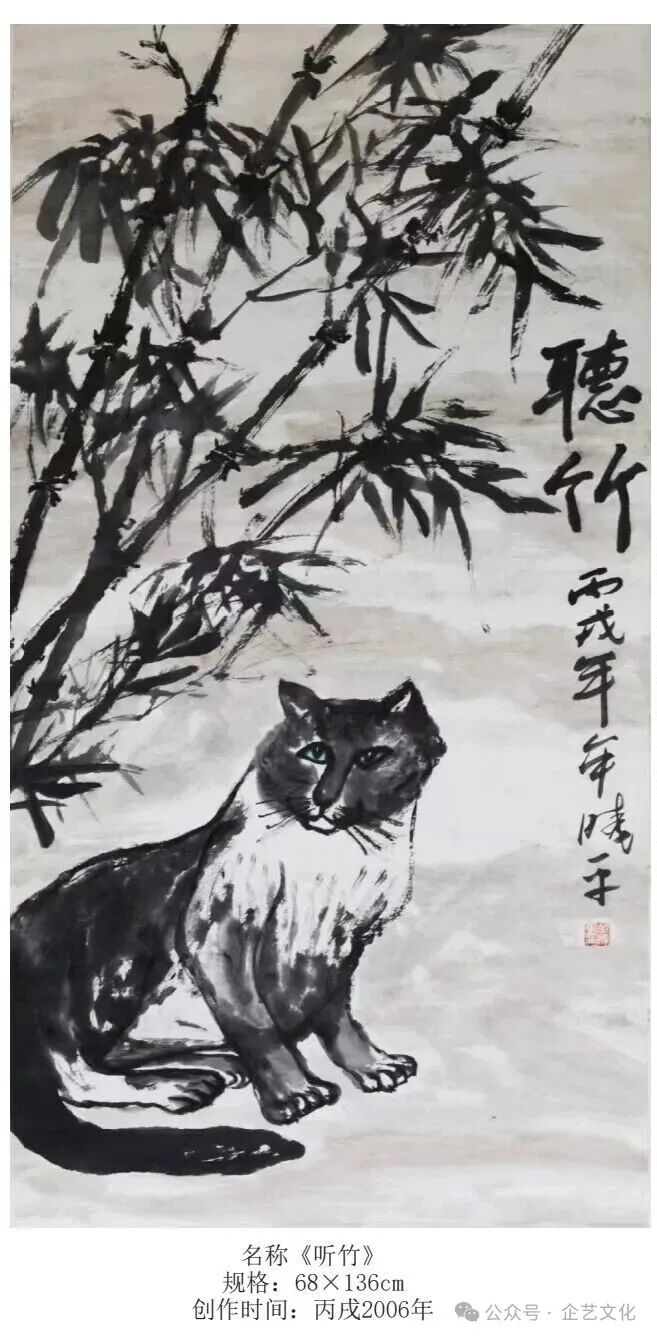 聽竹
丙戌年年平
名称《听竹》
规格：68×136cm
创作时间：丙戌2006年
公众号·企艺文化